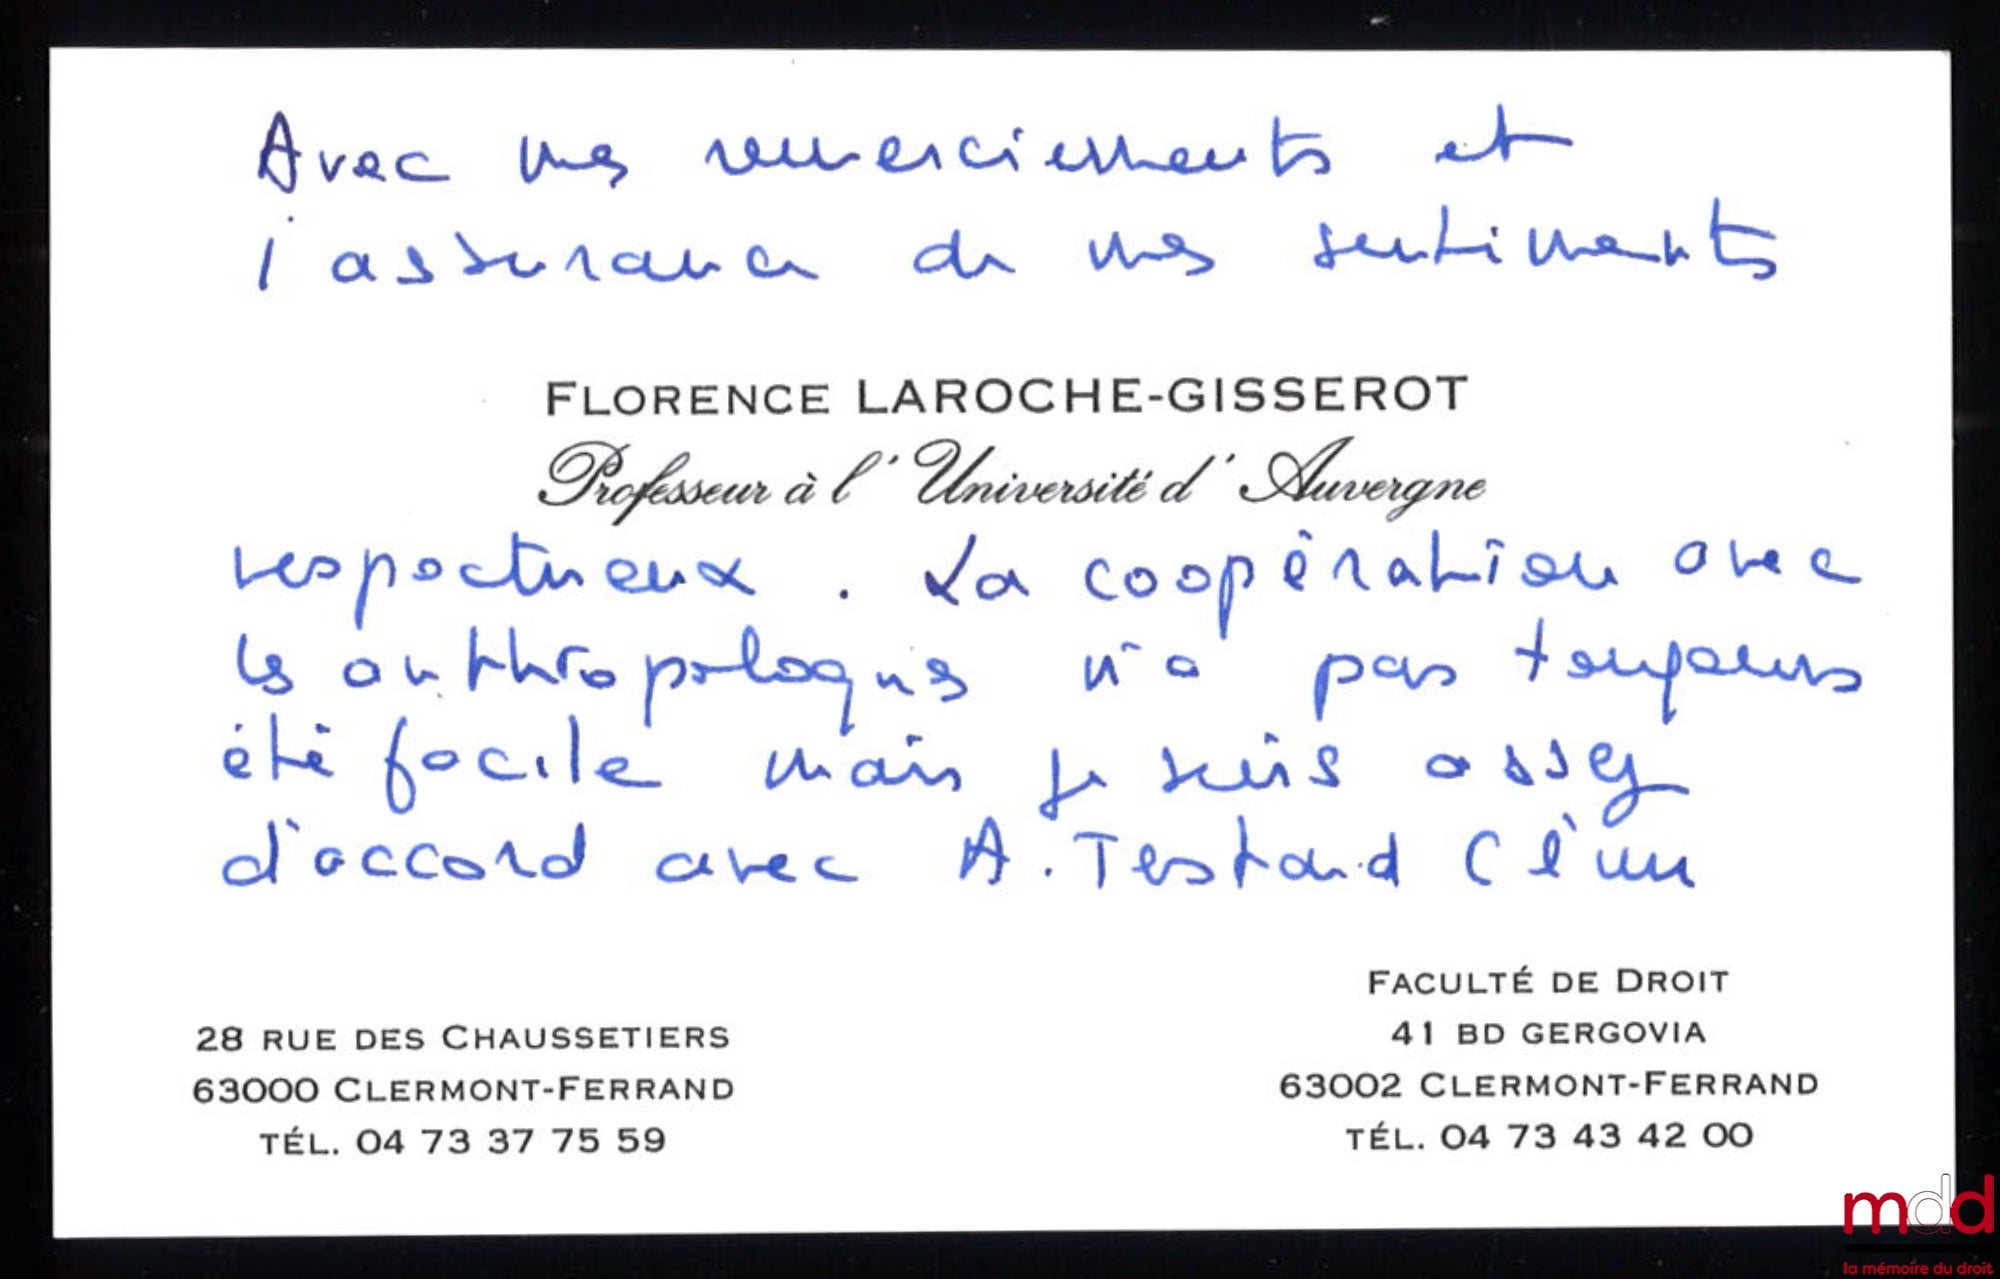 Avec mes remerciements et
l'assurance de mes sentiments
FLORENCE LAROCHE-GISSEROT
Professeur à l'Université d'Auvergne
respectueux. La coopération avec
les anthropologues n'a pas toujours
été facile mais je suis assez
d'accord avec A. Testard (l'un
FACULTÉ DE DROIT
28 RUE DES CHAUSSETIERS 41 BD GERGOVIA
63000 CLERMONT-FERRAND 63002 CLERMONT-FERRAND
TÉL. 04 73 37 75 59 TÉL. 04 73 43 42 00
mdd
la mémoire du droit